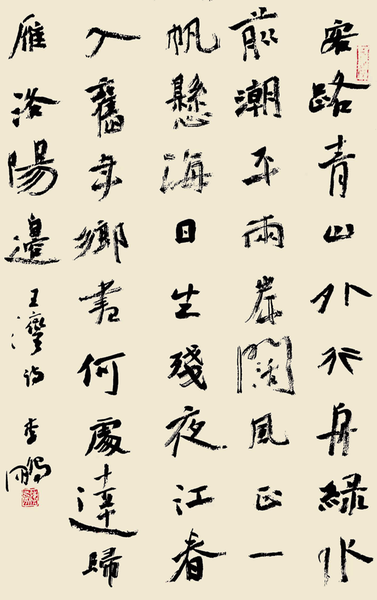 客路青山外行舟綠水
前潮平兩岸闊風正一
帆懸海日生殘夜江春
入舊年鄉書何處達歸
雁洛陽邊王灣詩李鵬